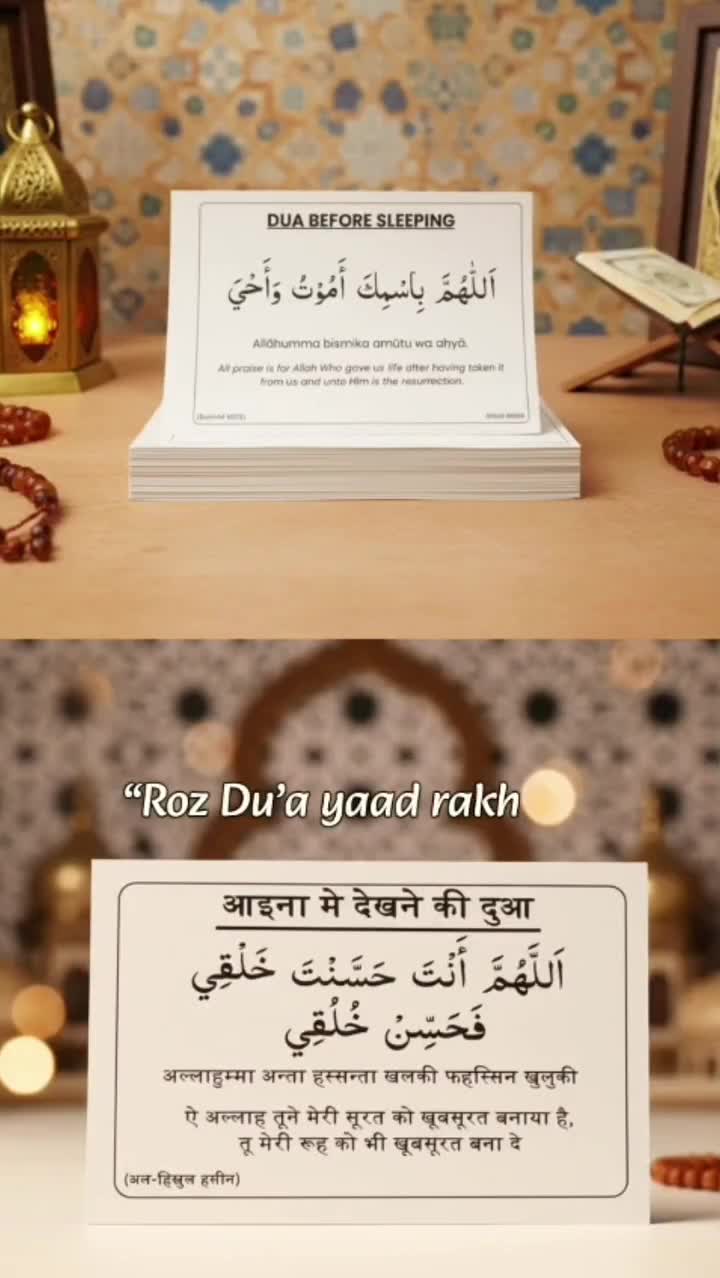 DUA BEFORE SLEEPING
اَللّٰهُمَّ بِاسْمِكَ أَمُوْتُ وَأَحْيَ
Allāhumma bismika amūtu wa ahyā.
All praise is for Allah Who gave us life after having taken it
from us and unto Him is the resurrection.
“Roz Du’a yaad rakh
आइना मे देखने की दुआ
اَللَّهُمَّ أَنْتَ حَسَّنْتَ خَلْقِي
فَحَسِّنْ خُلُقِي
अल्लाहुम्मा अन्ता हस्सन्ता खलकी फहस्सिन खुलुकी
ऐ अल्लाह तूने मेरी सूरत को खूबसूरत बनाया है,
तू मेरी रूह को भी खूबसूरत बना दे
(अल-हिस्नुल हसीन)